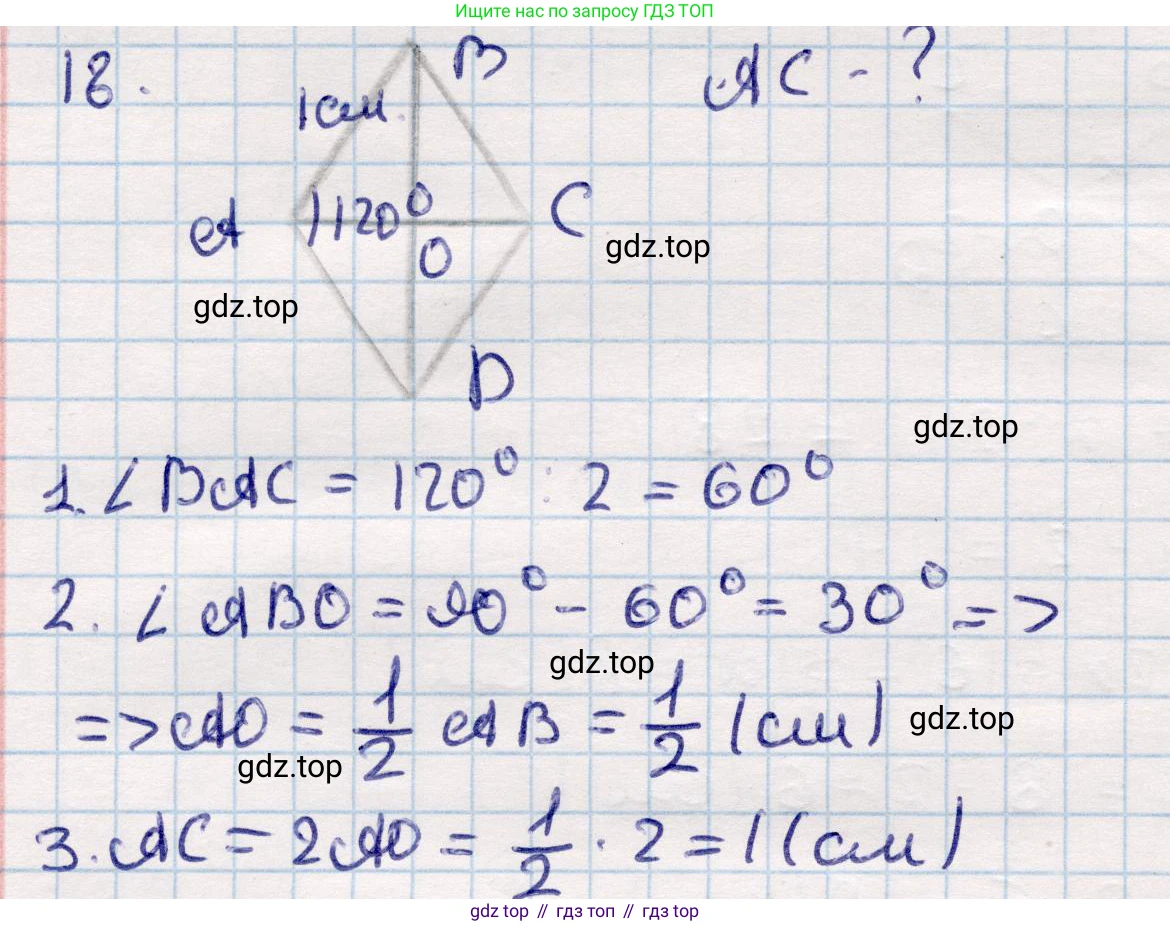 Ищите нас по запросу ГДЗ ТОП
18. B AC - ?
1 см
A 120° C
O
gdz.top
gdz.top
D
gdz.top
1. ∠BAC = 120° : 2 = 60°
2. ∠ABO = 90° - 60° = 30° =>
gdz.top
=> AO = 1/2 AB = 1/2 (см)
gdz.top
gdz.top
3. AC = 2AO = 1/2 · 2 = 1 (см)
gdz top // гдз топ // гдз top